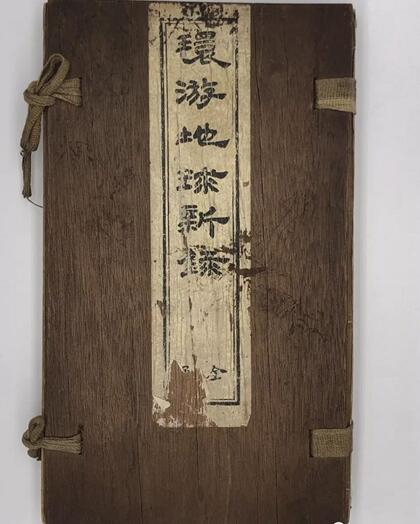 環游地球新錄
全